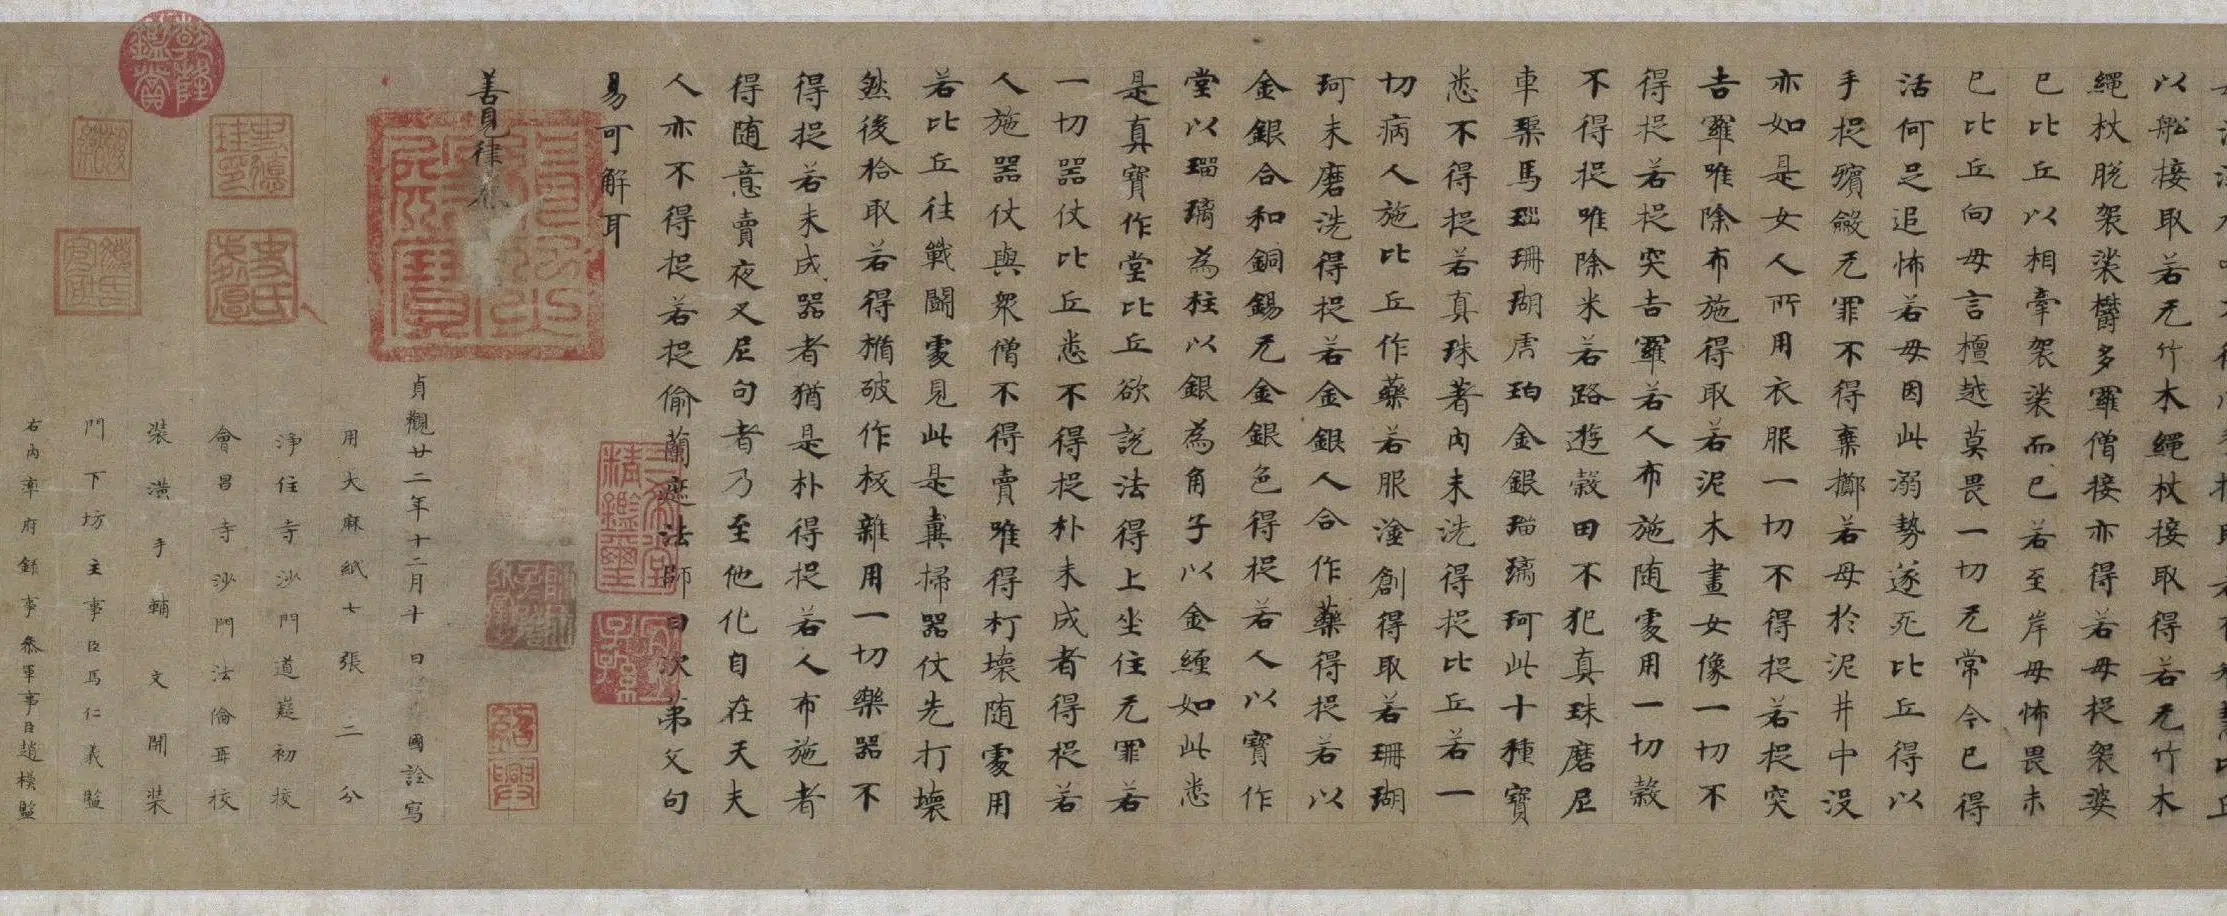 以船接取若无竹木繩杖接取得若无竹木
繩杖脫袈裟欝多羅僧接亦得若母捉袈婆
已比丘以相牽袈裟而已若至岸母怖畏未
已比丘向母言檀越莫畏一切无常今已得
活何足追怖若母因此溺勢遂死比丘得以
手捉殯殮无罪不得棄擲若母於泥井中沒
亦如是女人所用衣服一切不得捉若捉突
吉羅唯除布施得取若泥木畫女像一切不
得捉若捉突吉羅若人布施随處用一切穀
不得捉唯除米若路遊穀田不犯真珠磨尼
車渠馬瑙珊瑚虎珀金銀瑠璃珂此十種寶
悉不得捉若真珠著內未洗得捉比丘若一
切病人施比丘作藥若服塗創得取若珊瑚
珂未磨洗得捉若金銀人合作藥得捉若以
金銀合和銅錫无金銀色得捉若人以寶作
堂以瑠璃為柱以銀為角子以金緾如此悉
是真寶作堂比丘欲說法得上坐住无罪若
一切器仗比丘悉不得捉朴未成者得捉若
人施器仗與衆僧不得賣唯得打壞随處用
若比丘往戰鬪處見此是糞掃器仗先打壞
然後拾取若得楯破作板雜用一切樂器不
得捉若未成器者猶是朴得捉若人布施者
得随意賣夜叉尼句者乃至他化自在天夫
人亦不得捉若捉偷蘭遮法師曰次第文句
易可解耳
善見律
貞觀廿二年十二月十日 國詮寫
用大麻紙七張二分
淨住寺沙門道嶷初校
會昌寺沙門法倫再校
裝潢手輔文開裝
門下坊主事臣馬仁義監
右內率府錄事參軍事臣趙模監
乾隆鑑賞
三希堂精鑑璽
宜子孫
紹興